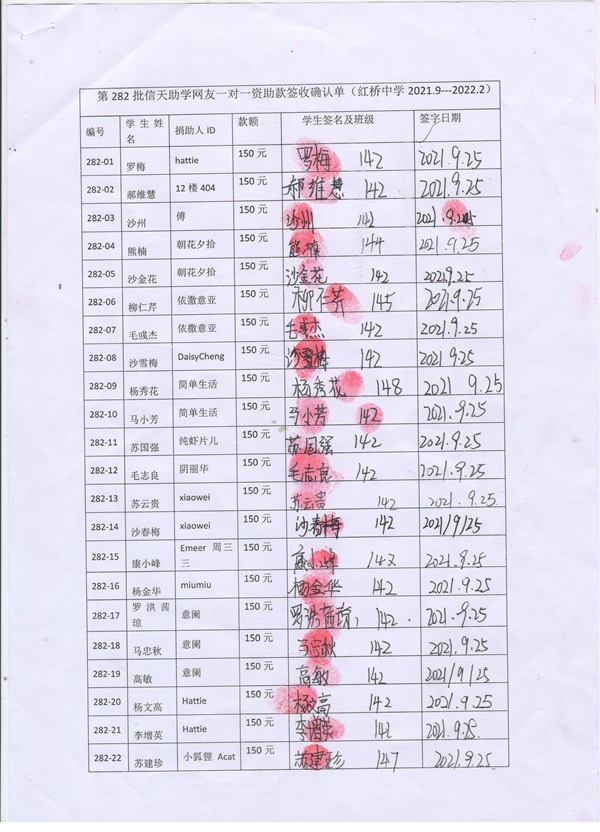 第 282 批信天助学网友一对一资助款签收确认单（红桥中学 2021.9---2022.2）
编号 学生姓名 捐助人 ID 款额 学生签名及班级 签字日期
282-01 罗梅 hattie 150 元 罗梅 142 2021.9.25
282-02 郝维慧 12 楼 404 150 元 郝维慧 142 2021.9.25
282-03 沙州 傅 150 元 沙州 142 2021.9.25
282-04 熊楠 朝花夕拾 150 元 熊楠 144 2021.9.25
282-05 沙金花 朝花夕拾 150 元 沙金花 142 2021.9.25
282-06 柳仁芹 依撒意亚 150 元 柳仁芹 145 2021.9.25
282-07 毛彧杰 依撒意亚 150 元 毛彧杰 142 2021.9.25
282-08 沙雪梅 DaisyCheng 150 元 沙雪梅 142 2021 9.25
282-09 杨秀花 简单生活 150 元 杨秀花 148 2021 9.25
282-10 马小芳 简单生活 150 元 马小芳 142 2021.9.25
282-11 苏国强 纯虾片儿 150 元 苏国强 142 2021.9.25
282-12 毛志良 阴丽华 150 元 毛志良 142 2021.9.25
282-13 苏云贵 xiaowei 150 元 苏云贵 142 2021.9.25
282-14 沙春梅 xiaowei 150 元 沙春梅 142 2021/9/25
282-15 康小峰 Emeer 周三三 150 元 康小峰 142 2021.9.25
282-16 杨金华 miumiu 150 元 杨金华 142 2021.9.25
282-17 罗洪茜琼 意阑 150 元 罗洪茜琼 142 2021.9.25
282-18 马忠秋 意阑 150 元 马忠秋 142 2021.9.25
282-19 高敏 意阑 150 元 高敏 142 2021/9/25
282-20 杨文高 Hattie 150 元 杨文高 142 2021.9.25
282-21 李增英 Hattie 150 元 李增英 142 2021.9.25
282-22 苏建珍 小狐狸 Acat 150 元 苏建珍 147 2021.9.25